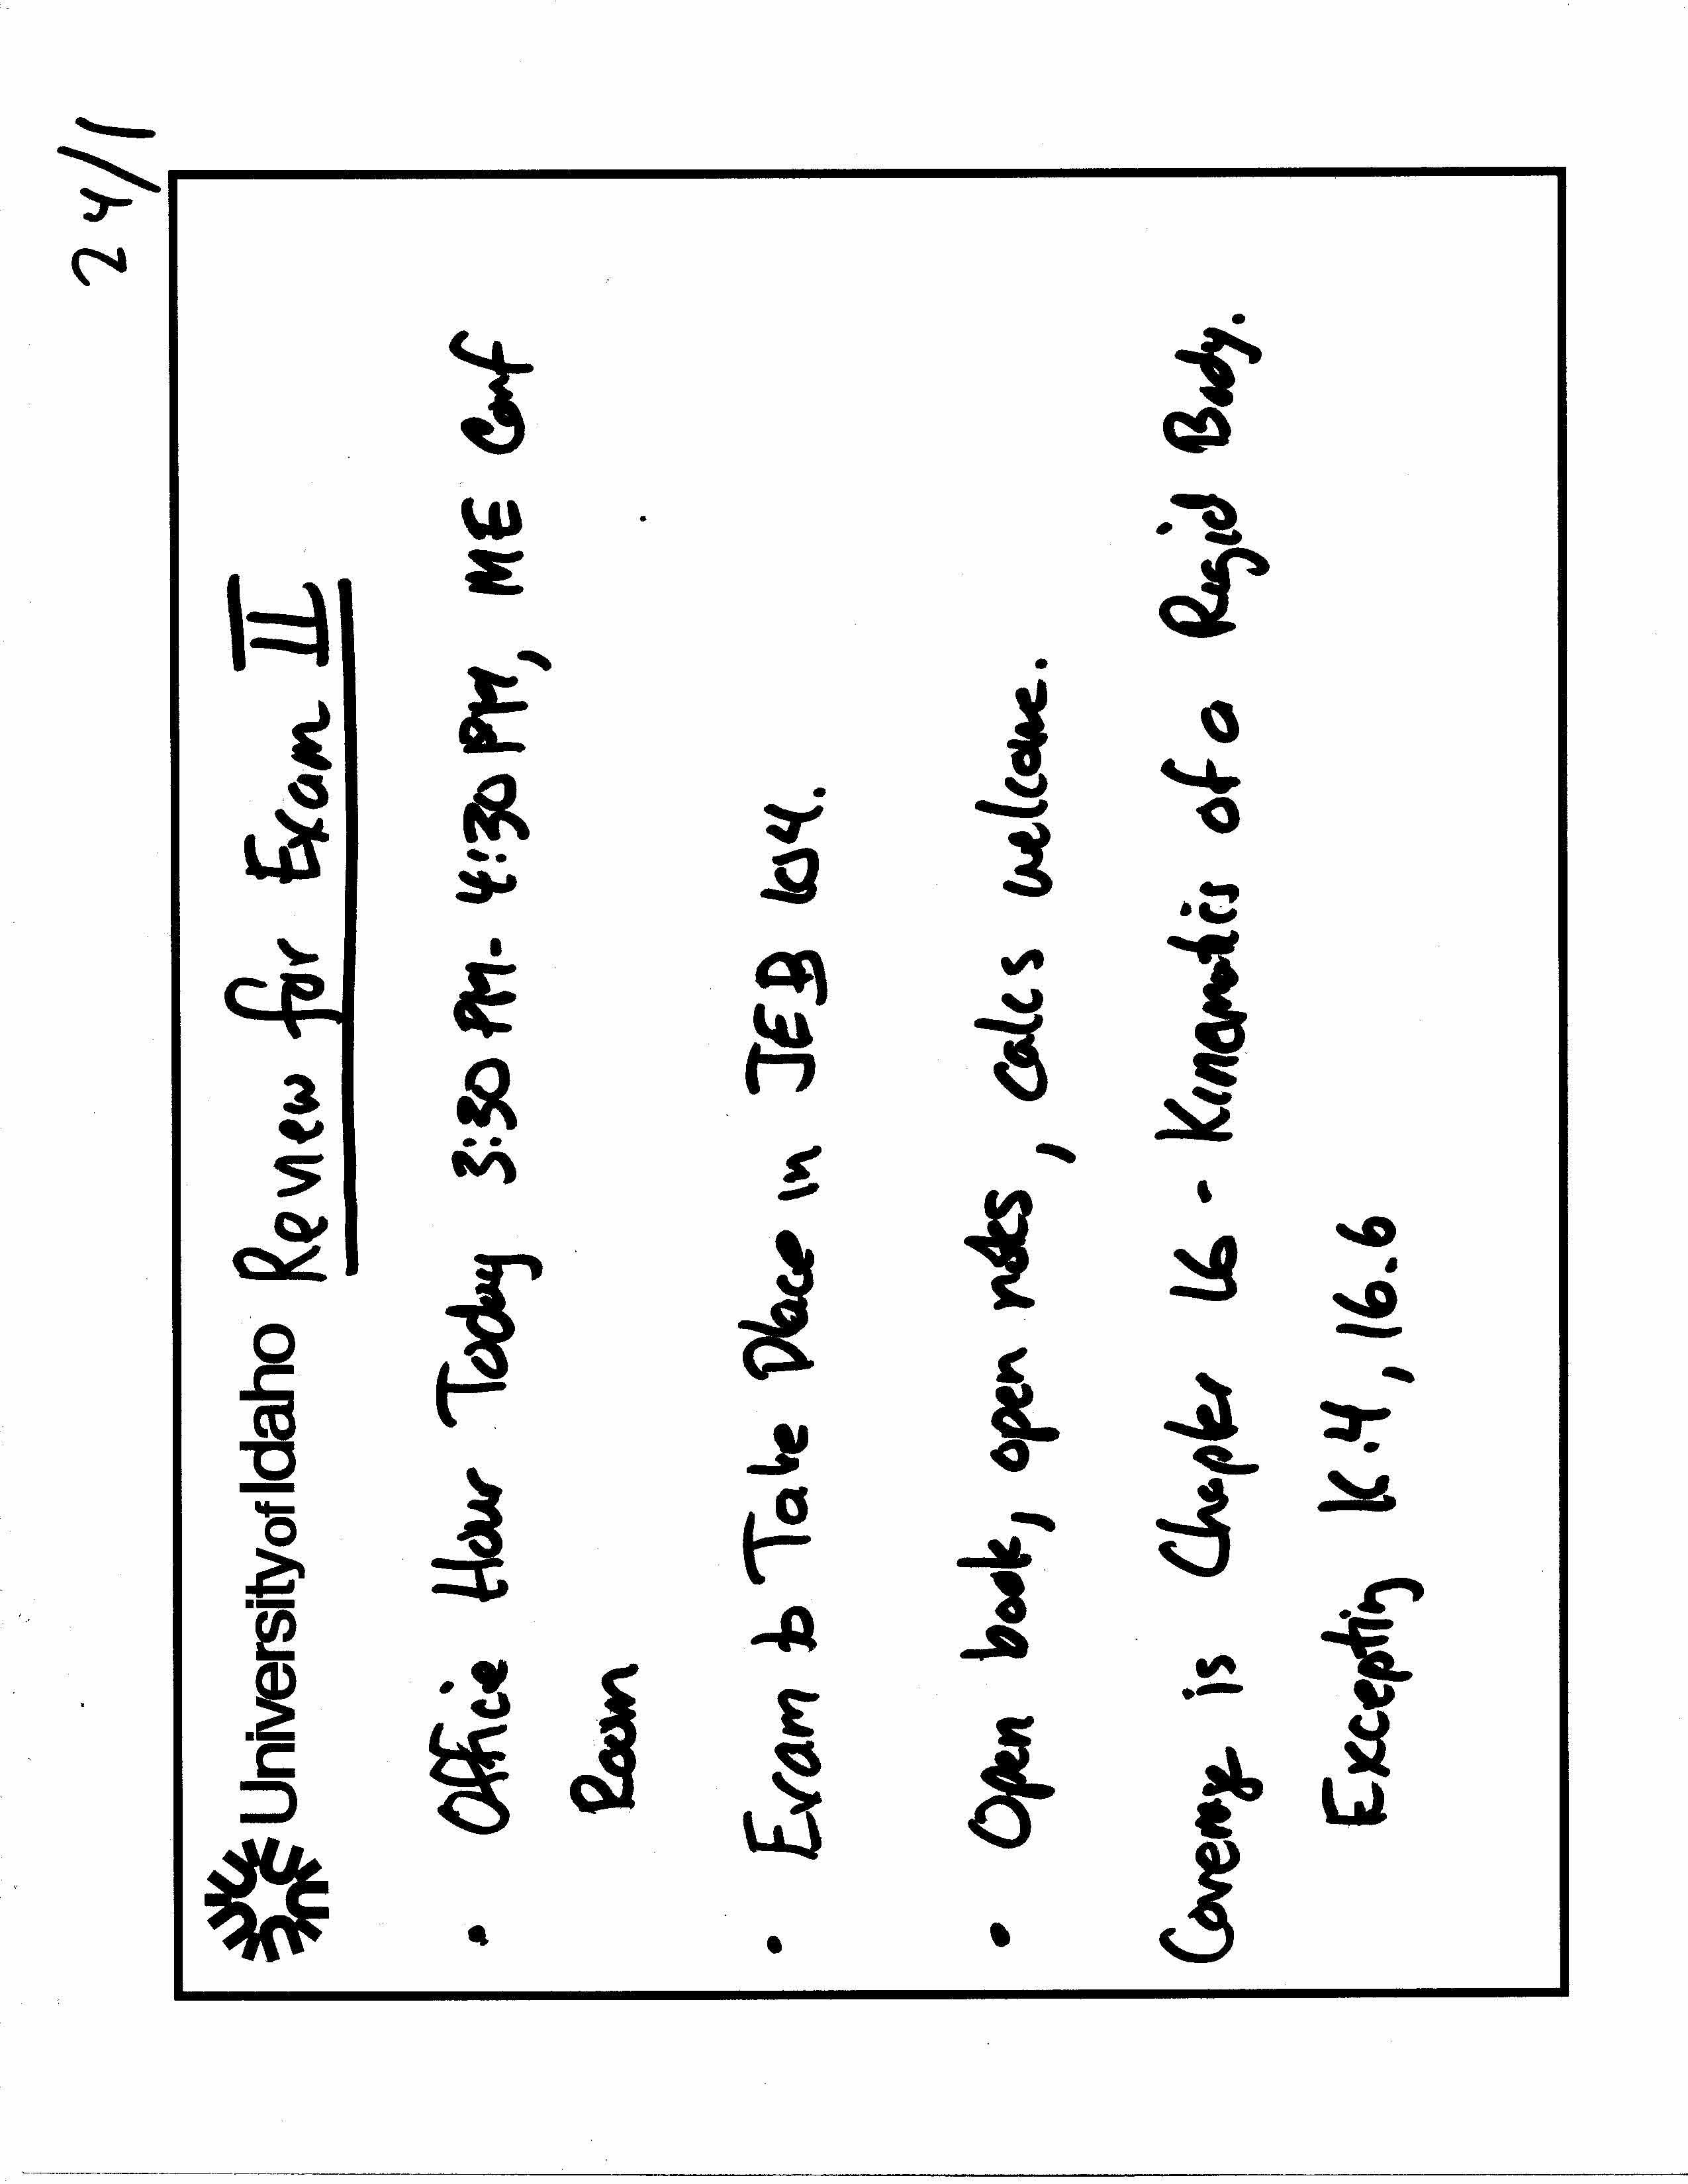 24/1
University of Idaho Review for Exam II
• Office Hour Today 3:30 PM- 4:30 PM, ME Conf
Room
• Exam to Take Place in JEB 104.
• Open book, open notes, calcs welcome.
Coverage is Chapter 16 - Kinematics of a Rigid Body.
Excepting 16.4, 16.6